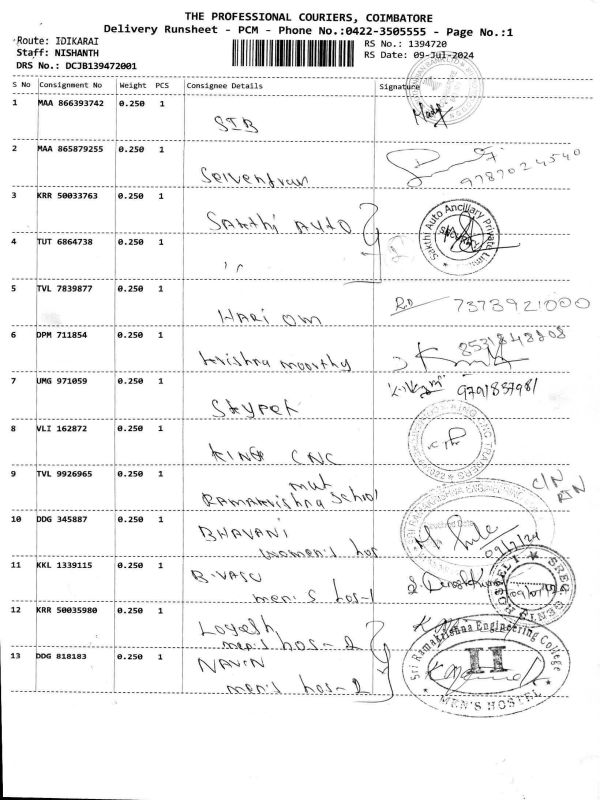 THE PROFESSIONAL COURIERS, COIMBATORE
Delivery Runsheet - PCM - Phone No.:0422-3505555 - Page No.:1
Route: IDIKARAI
RS No.: 1394720
Staff: NISHANTH
RS Date: 09-Jul-2024
DRS No.: DCJB139472001
S No Consignment No Weight PCS Consignee Details Signature
1 MAA 866393742 0.250 1
SIB
2 MAA 865879255 0.250 1
Selventran 9787024540
3 KRR 50033763 0.250 1
Sakthi Auto
Sakthi Auto Ancillary Private Limi
SECURITY
4 TUT 6864738 0.250 1
''
5 TVL 7839877 0.250 1
Hari om 7373921000
6 DPM 711854 0.250 1
8531848808
krishna moorthy
7 UMG 971059 0.250 1
9791837981
Skyper
8 VLI 162872 0.250 1
King CNC
9 TVL 9926965 0.250 1
mat
C/N
RN
Ramakrishna School
10 DDG 345887 0.250 1
Bhavani
women's hos
09/7/24
11 KKL 1339115 0.250 1
B.Vasu
men's hos-1
12 KRR 50035980 0.250 1
Logesh
men's hos-2
13 DDG 818183 0.250 1
Navin
men's hos-2
Sri Ramakrishna Engineering College
II
MEN'S HOSTEL